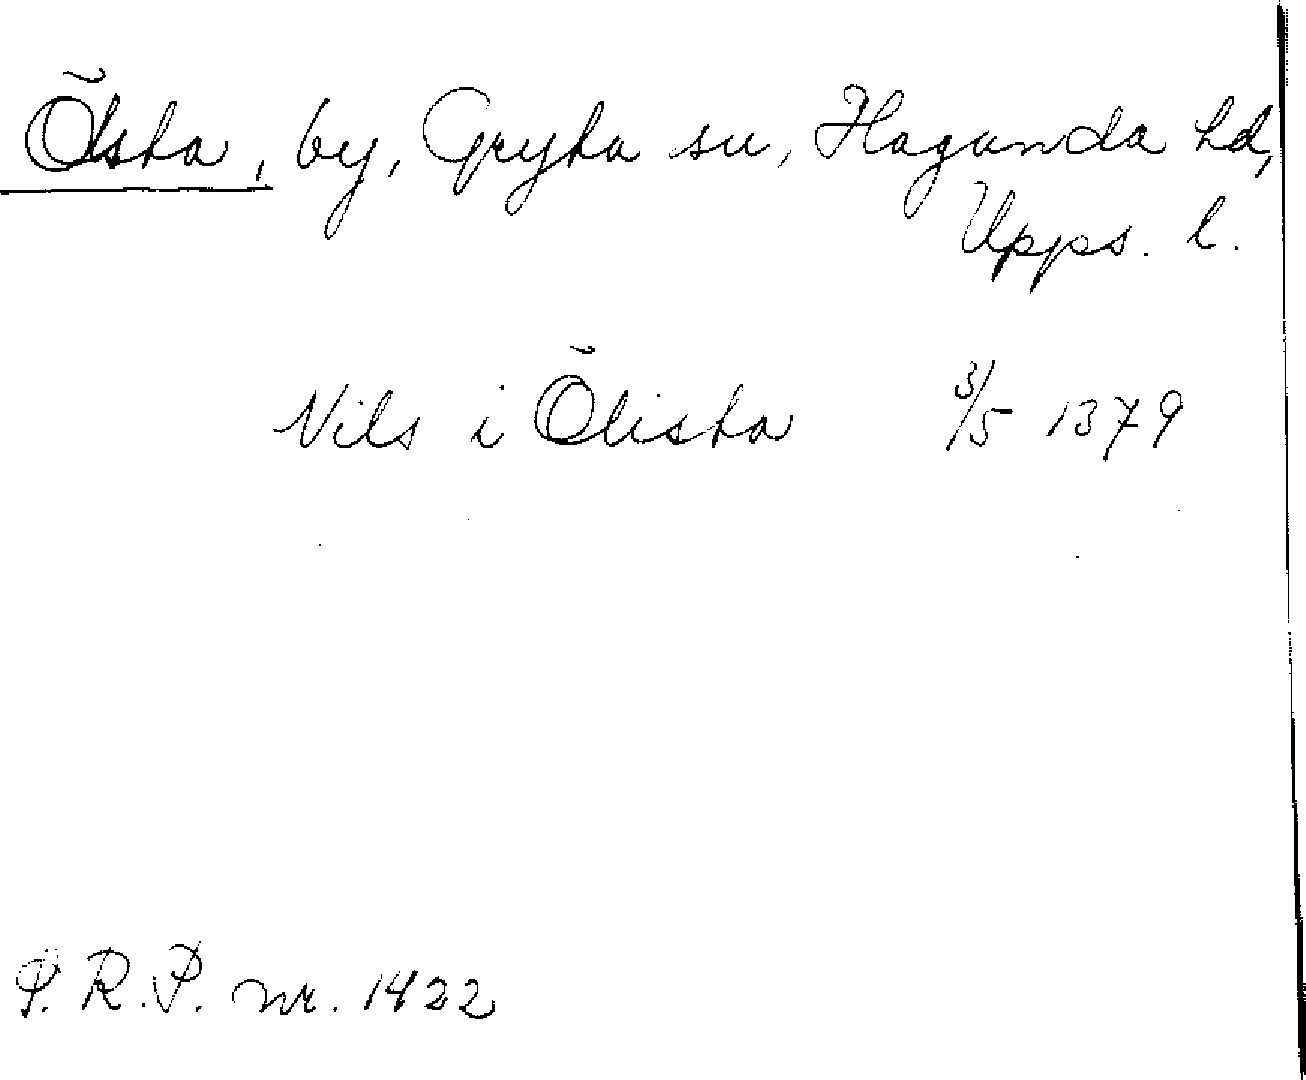 Ölsta, by, Gryta sn, Hagunda hd,
Upps. l.
Nils i Ölista 3/5 1379
S. R. P. nr. 1422